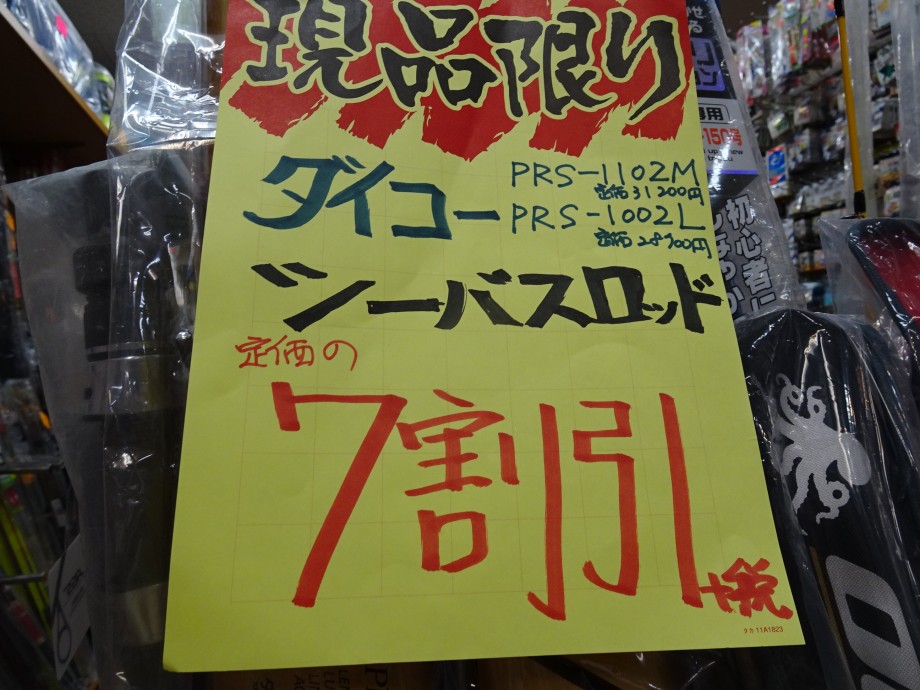 現品限り
ダイコー
PRS-1102M
定価31200円
PRS-1002L
定価28700円
シーバスロッド
定価の
7割引
+税
タカ 11A1823
専用
初心者に